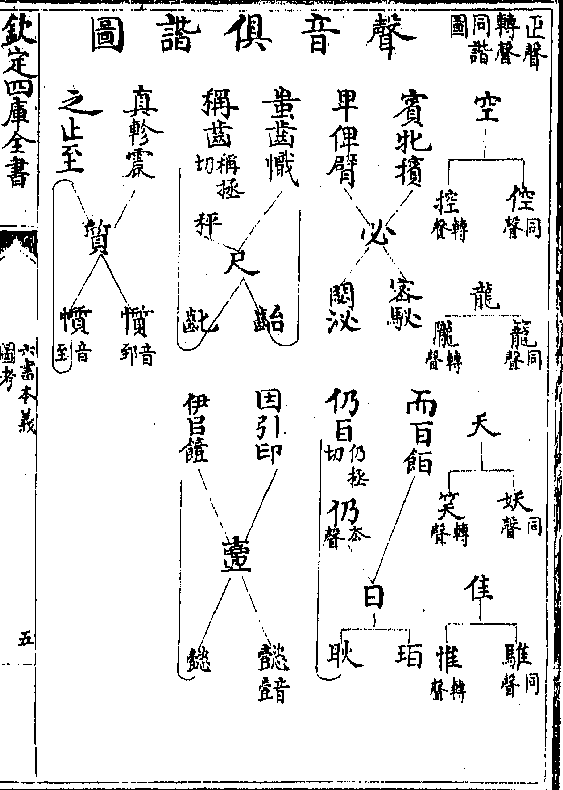 聲音俱諧圖
正聲轉聲同諧圖
空
倥同聲
控轉聲
龍
籠同聲
朧轉聲
天
妖同聲
笑轉聲
隹
騅同聲
惟轉聲
賓牝擯
卑俾臂
必
密駜
閟泌
而耳餌
仍耳仍極切
仍夲聲
日
珆
耿
蚩齒幟
稱齒稱拯切
秤
尺
齝
齔
因引印
伊㠯饐
壹
懿音壹
懿
真軫震
之止至
質
懫音郅
懫音至
欽定四庫全書
六書本義圖考
五